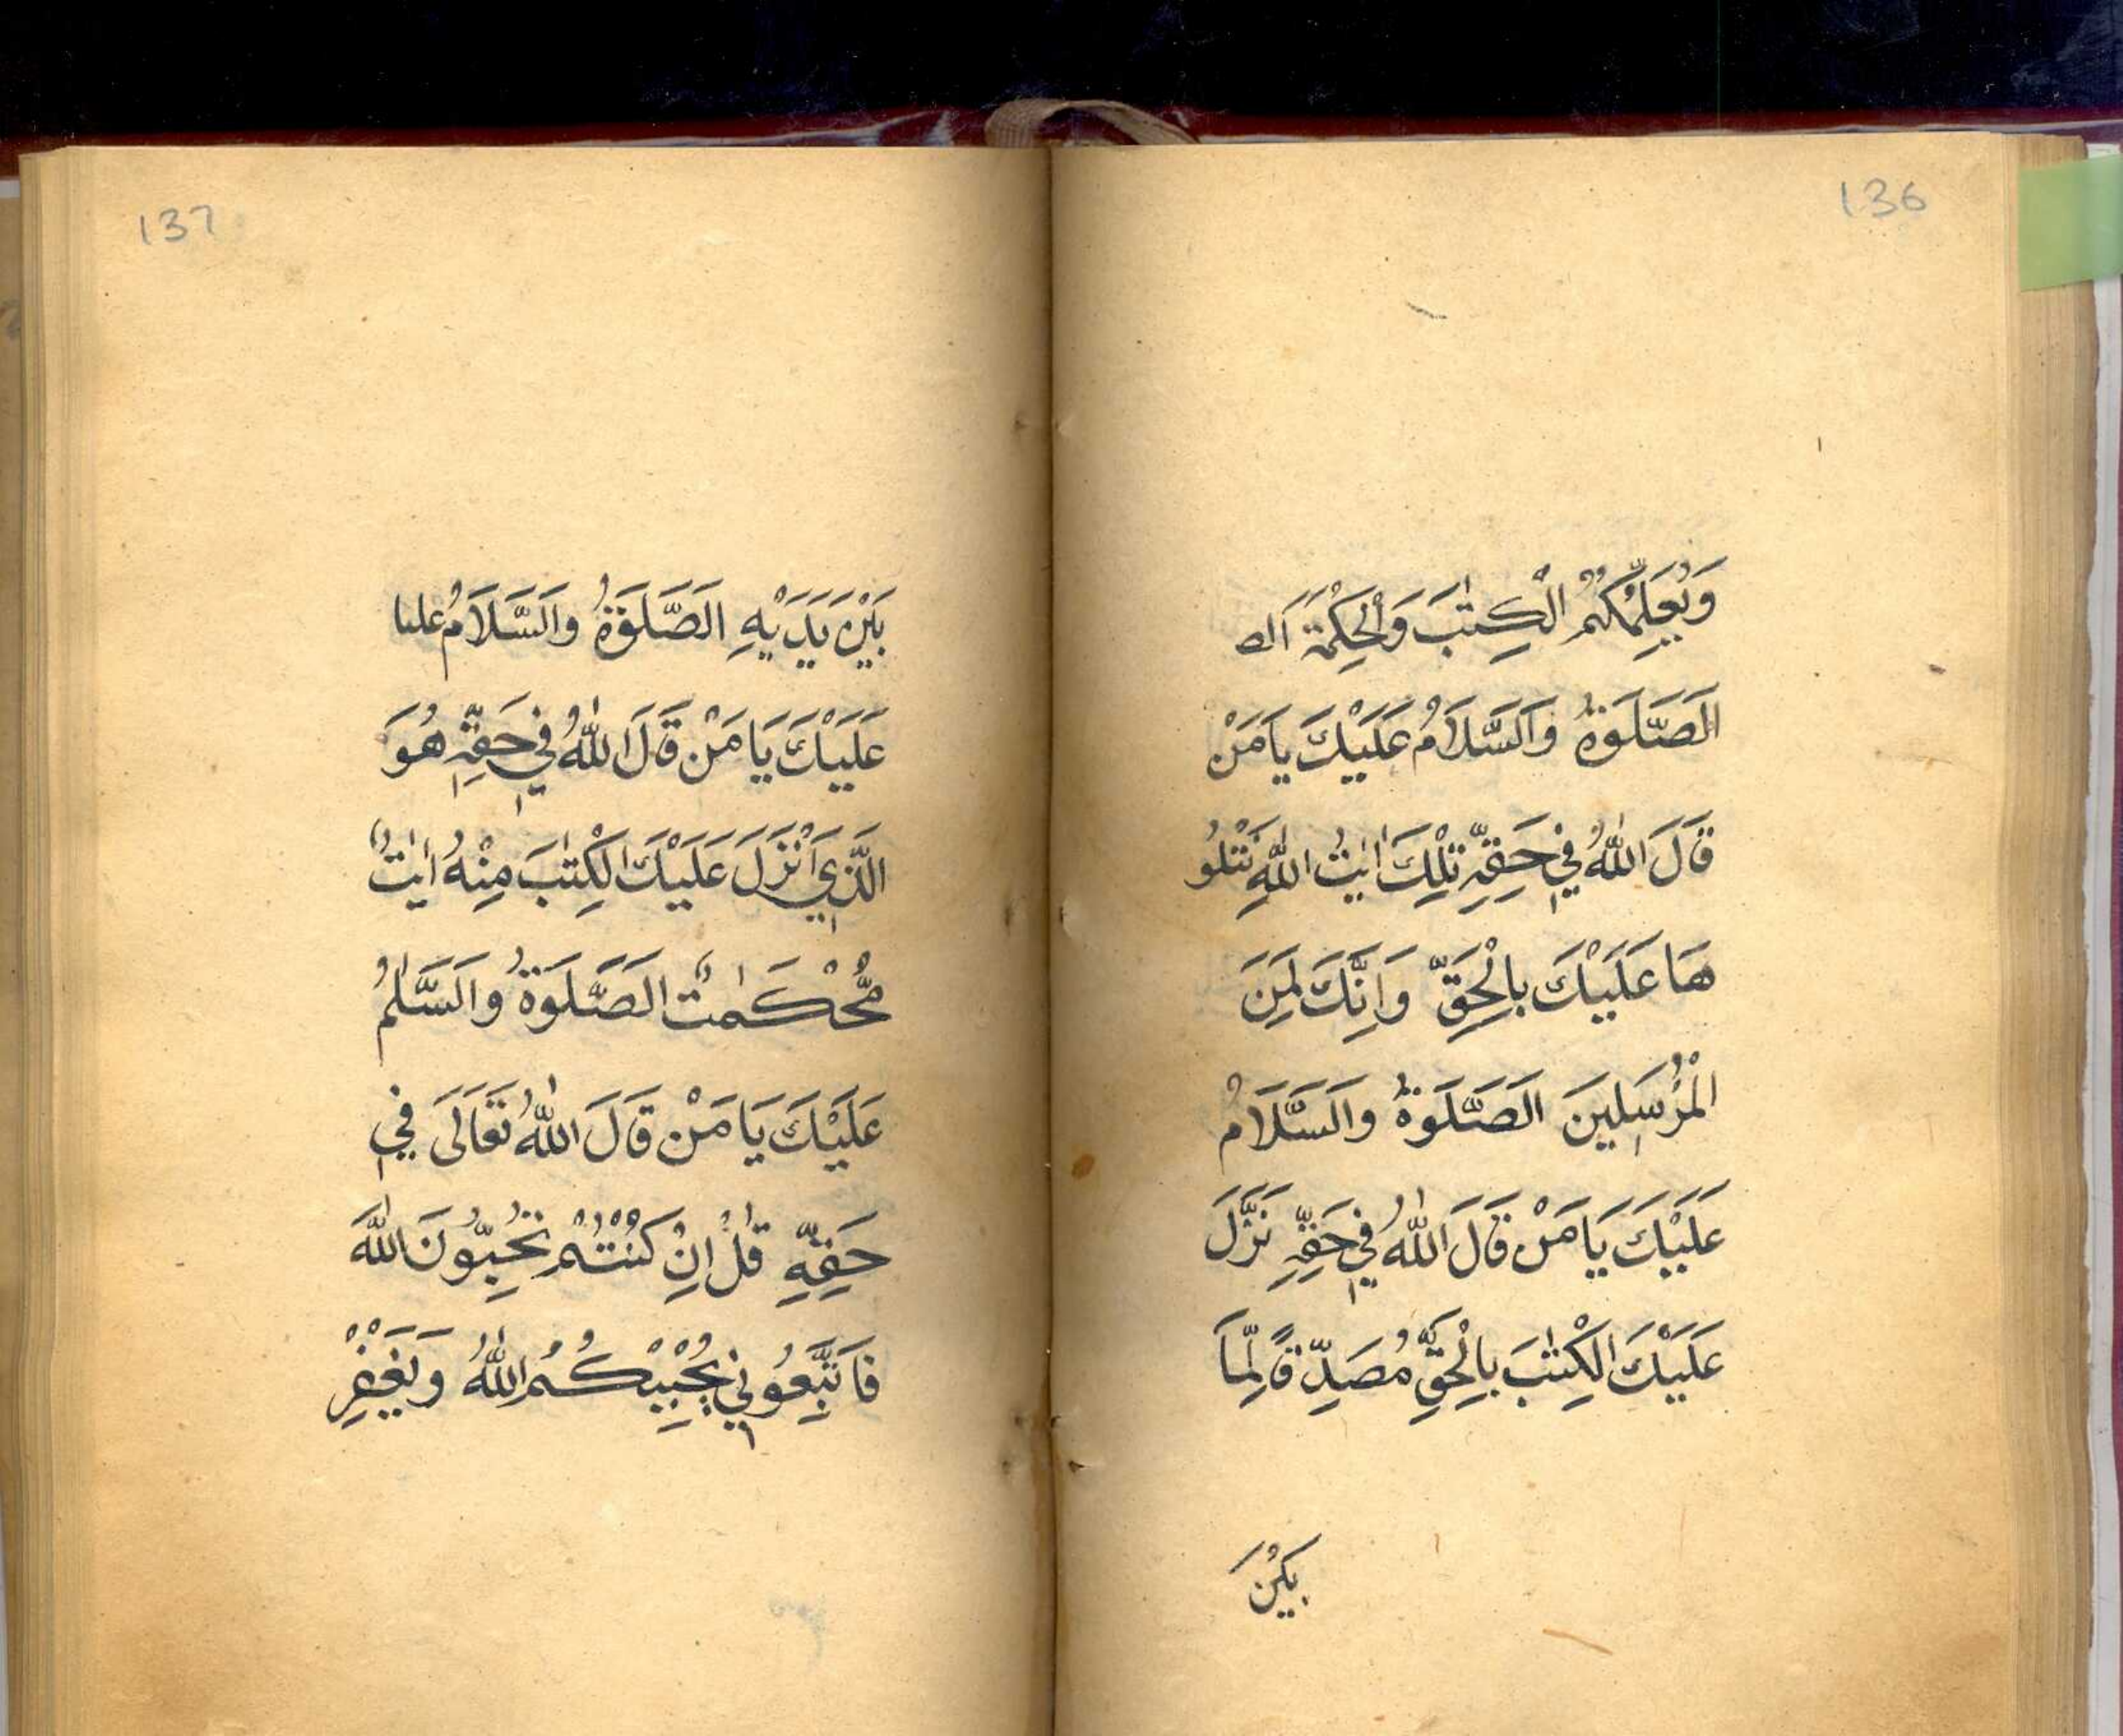 136
وَيُعَلِّمُكُمُ الْكِتٰبَ وَالْحِكْمَةَ الص
الَصَّلَوةُ وَالَسَّلَامُ عَلَيْكَ يَا مَنْ
قَالَ اللّٰهُ فِي حَقِّهِ تِلْكَ اٰيٰتُ اللّٰهِ نَتْلُو
هَا عَلَيْكَ بِالْحَقِّ وَاِنَّكَ لَمِنَ
الْمُرْسَلِينَ الَصَّلَوةُ وَالَسَّلَامُ
عَلَيْكَ يَا مَنْ قَالَ اللّٰهُ فِي حَقِّهِ نَزَّلَ
عَلَيْكَ الْكِتٰبَ بِالْحَقِّ مُصَدِّقًا لِّمَا
بَيْنَ
137
بَيْنَ يَدَيْهِ الَصَّلَوةُ وَالَسَّلَامُ عليا
عَلَيْكَ يَا مَنْ قَالَ اللّٰهُ فِي حَقِّهِ هُوَ
الَّذِي اَنْزَلَ عَلَيْكَ الْكِتٰبَ مِنْهُ اٰيٰتٌ
مُّحْكَمٰتٌ الَصَّلَوةُ وَالَسَّلٰمُ
عَلَيْكَ يَا مَنْ قَالَ اللّٰهُ تَعَالَى فِي
حَقِّهِ قُلْ اِنْ كُنْتُمْ تُحِبُّونَ اللّٰهَ
فَاتَّبِعُونِي يُحْبِبْكُمُ اللّٰهُ وَيَغْفِرْ